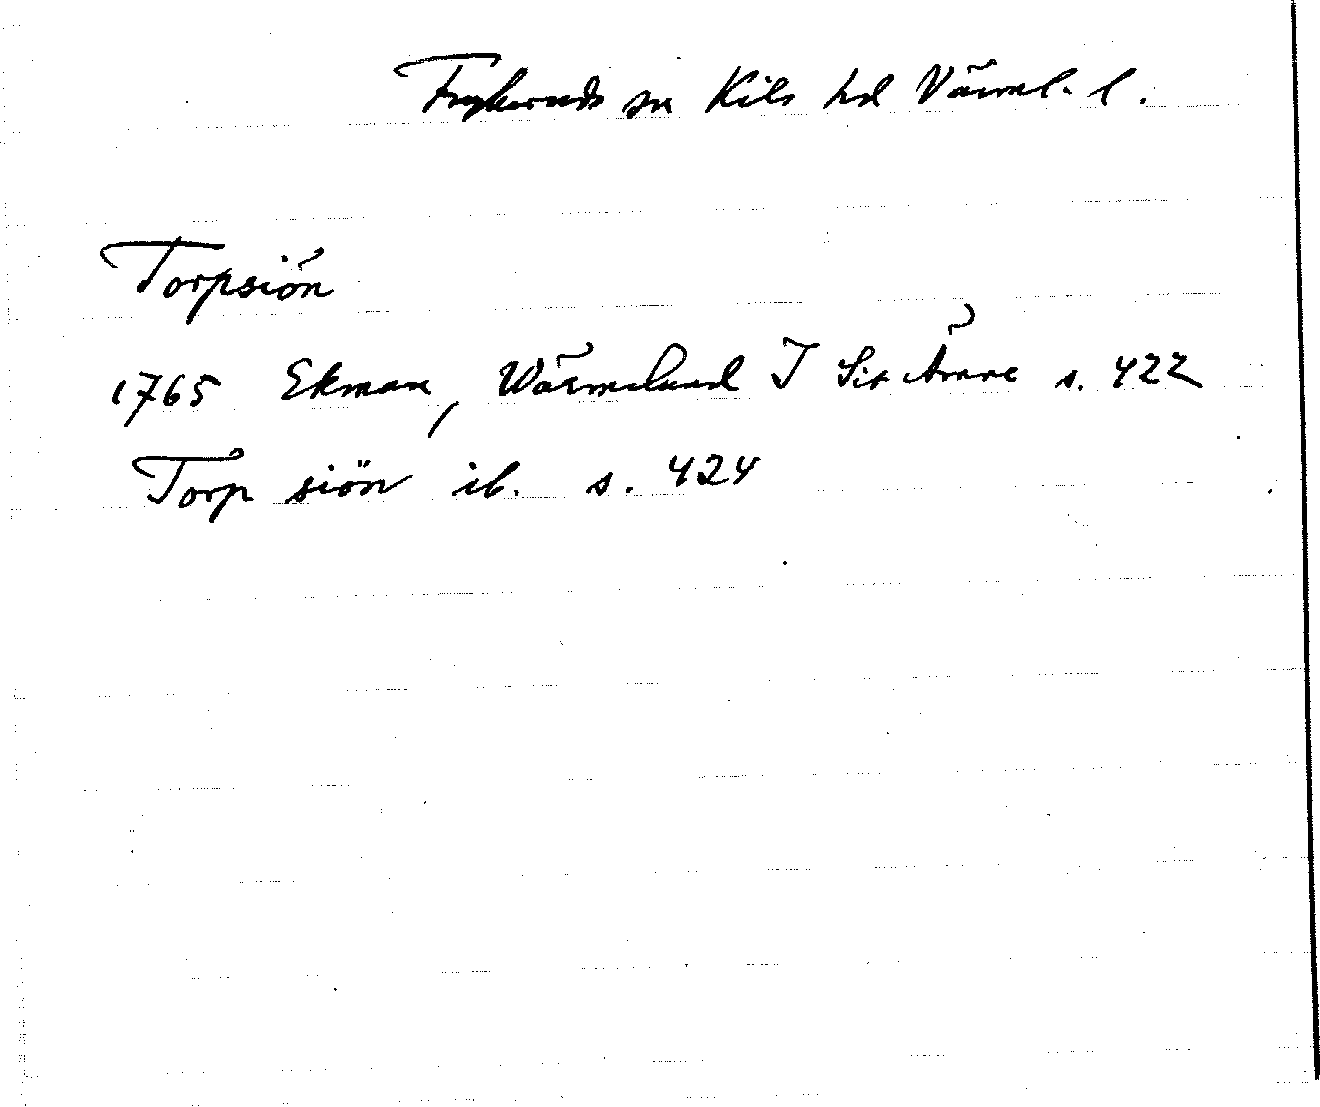 Frykeruds sn Kils hd Värml. l.
Torpsiön
1765 Ekman, Wärmeland I s. 422
Torp siön ib. s. 424